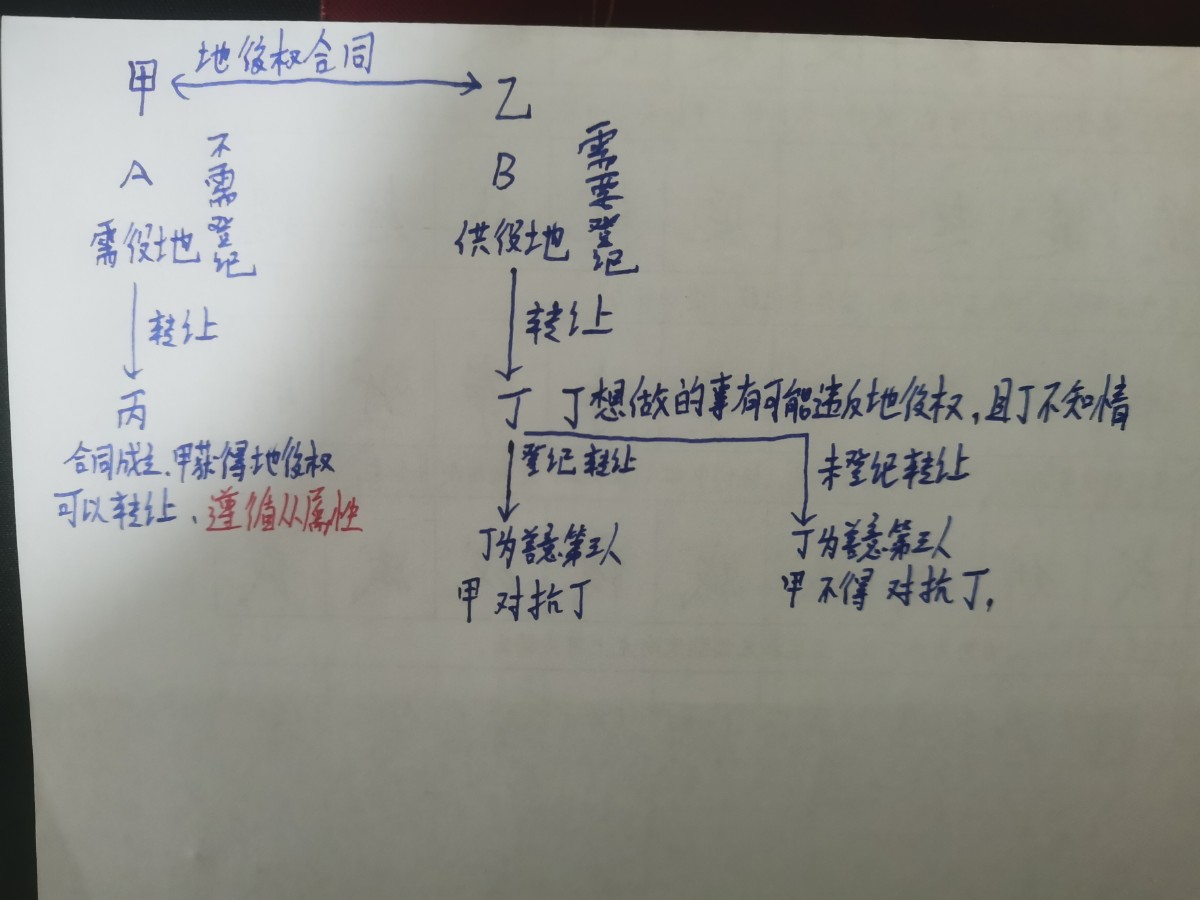 地役权合同
甲
乙
A
不需登记
B
需要登记
需役地
供役地
转让
转让
丙
丁
丁想做的事有可能违反地役权,且丁不知情
合同成立、甲获得地役权
可以转让、遵循从属性
登记转让
未登记转让
丁为善意第三人
甲对抗丁
丁为善意第三人
甲不得对抗丁,